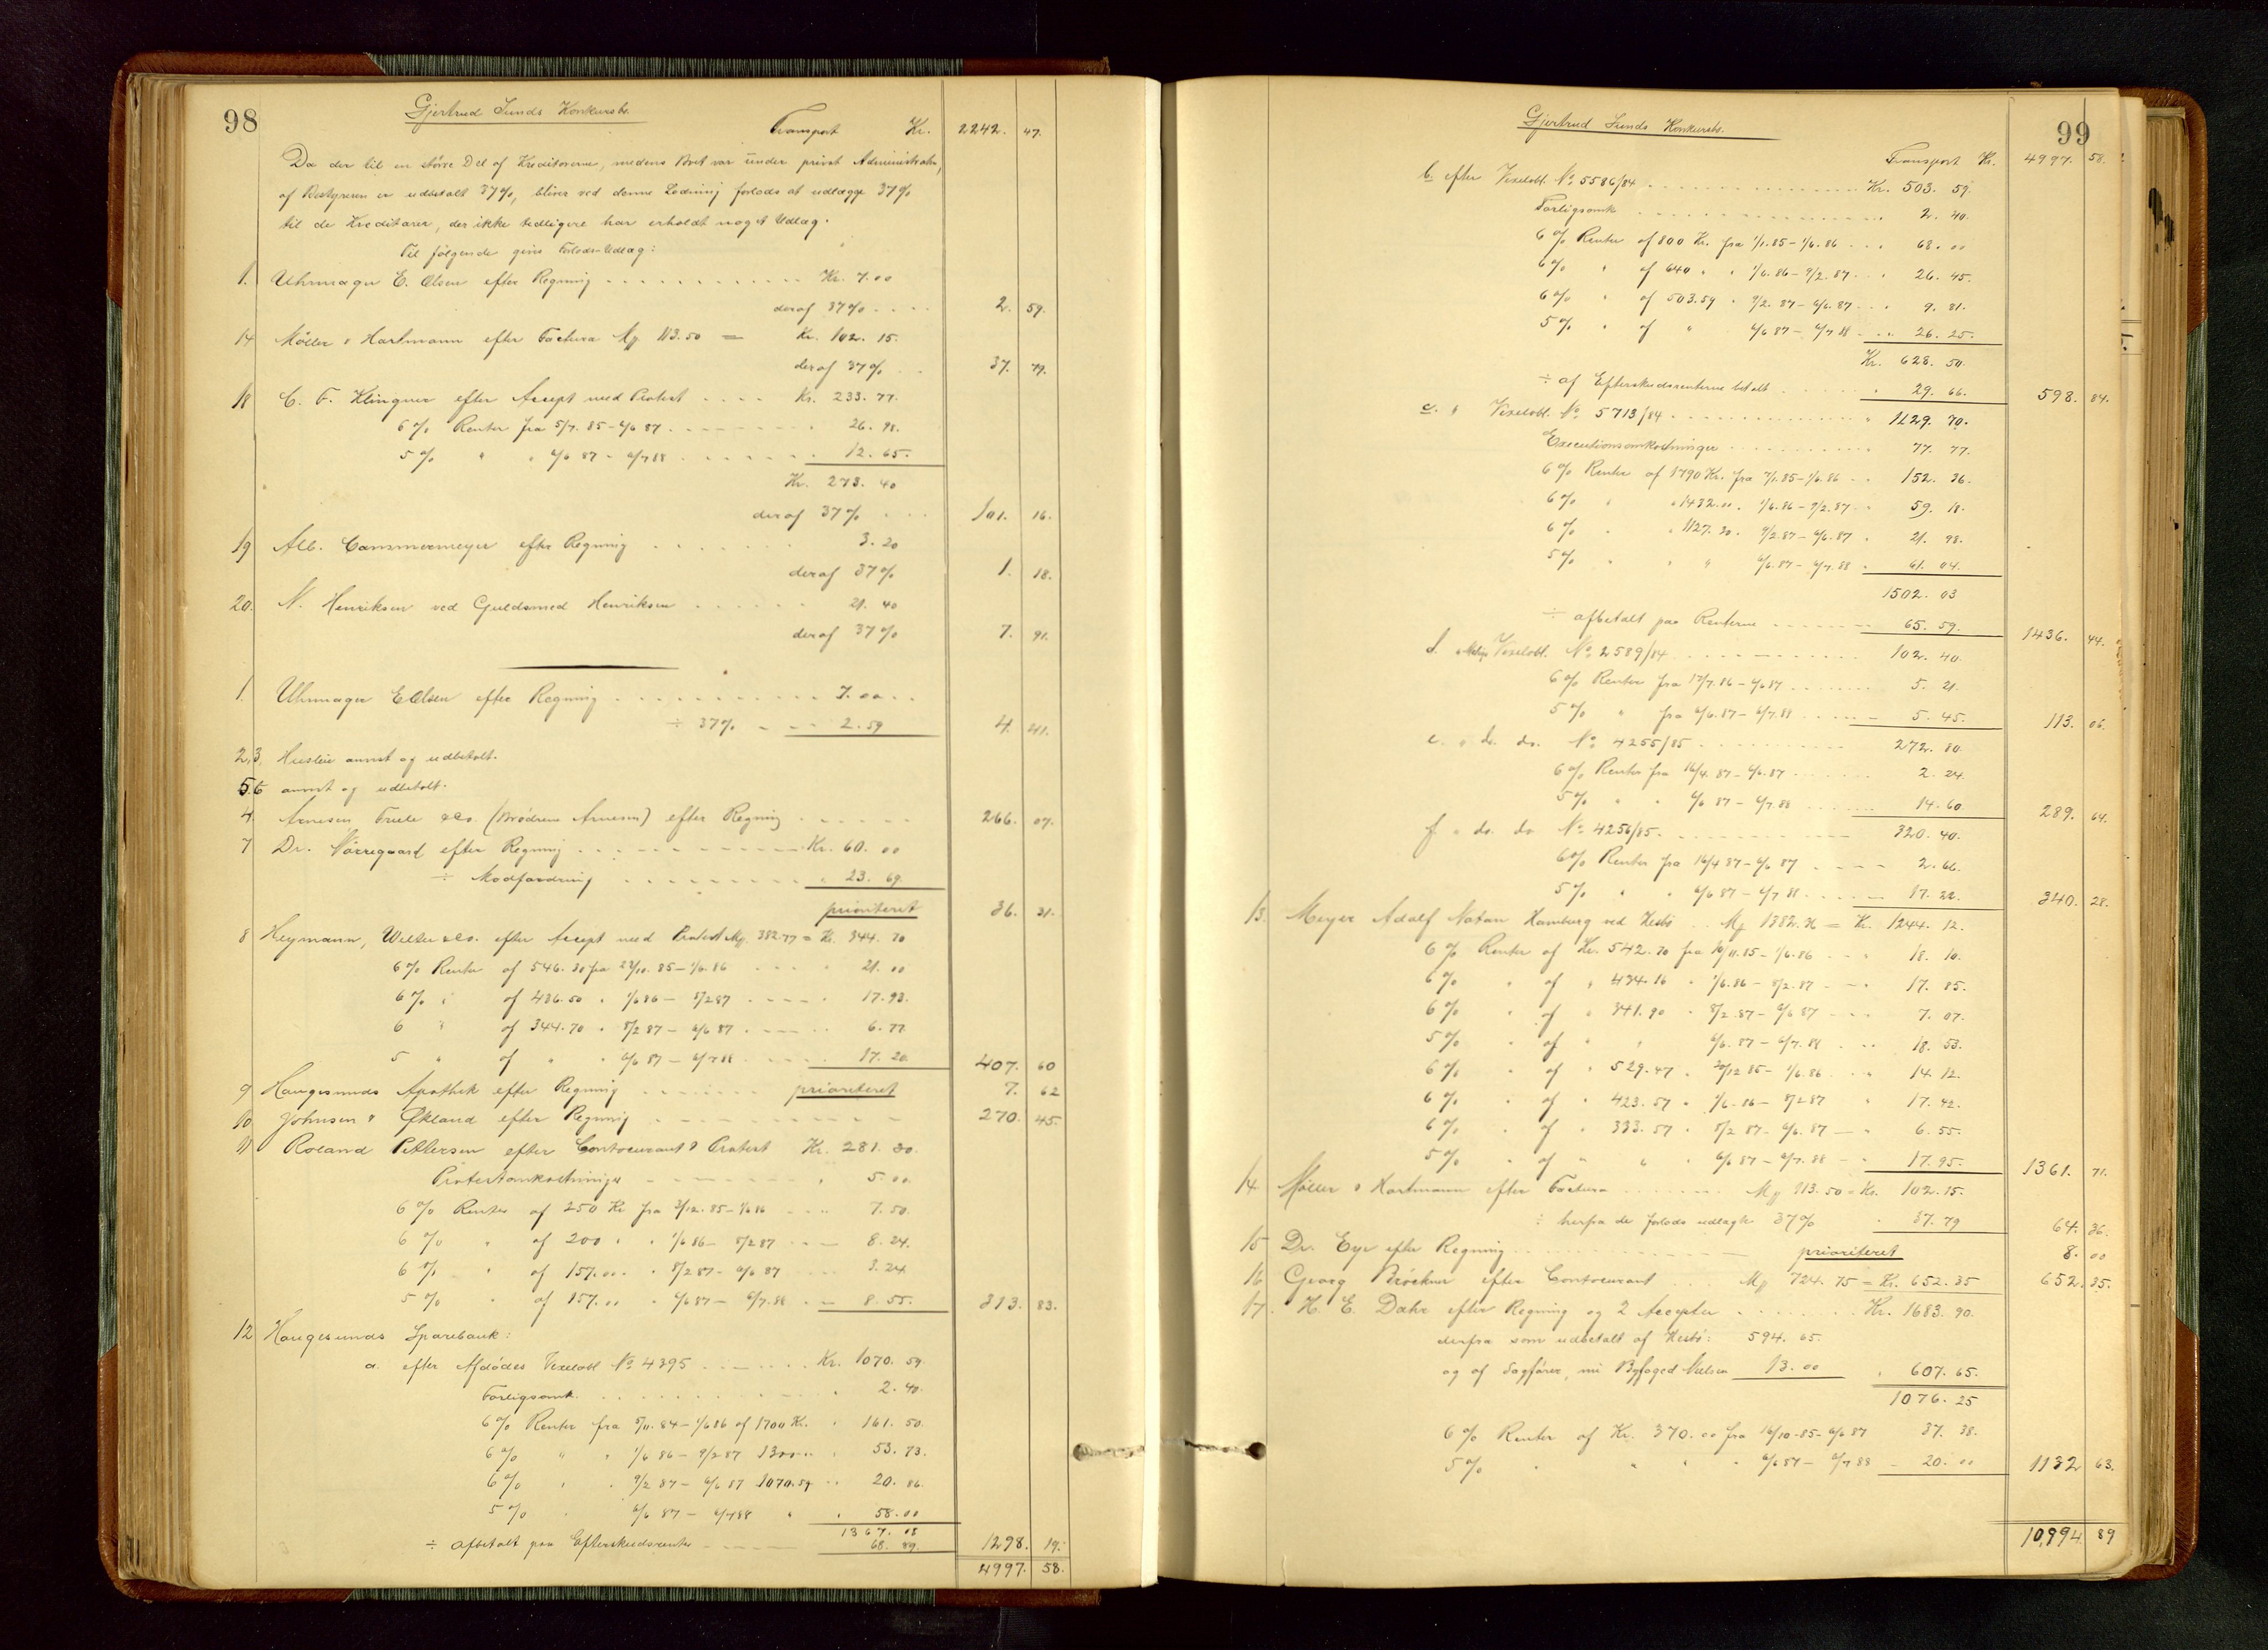 98
Gjertrud Sunds Konkursbo.
Transport Kr. 2242. 47.
Da der til en större Del af Kreditorerne, medens Boet var under privat Administration,
af Bestyreren er udbetalt 37%, bliver ved denne Lodning forlods at udlægge 37%
til de Kreditorer, der ikke tidligere har erholdt noget Udlæg.
Til følgende gives Forlods-Udlæg:
1. Uhrmager E. Olsen efter Regning Kr. 7.00
deraf 37% 2. 59.
14 Möller & Hartmann efter Factura Mk. 113.50 = Kr. 102. 15.
deraf 37% 37. 79.
18 C. F. Klingner efter Accept med Protest Kr. 233. 77.
6% Renter fra 5/7. 85 - 6/6 87 26. 98.
5% " " 6/6 87 - 6/7 88 12. 65.
Kr. 273. 40
deraf 37% 101. 16.
19 Alb. Cammermeyer efter Regning 3. 20
deraf 37% 1. 18.
20. N. Henriksen ved Guldsmed Henriksen 21. 40
deraf 37% 7. 91.
1. Uhrmager E Olsen efter Regning 7.00
÷ 37% 2.59 4. 41.
2,3, Husleie anvist og udbetalt.
5.6 anvist og udbetalt.
4. Arnesen Truls & Co. (Brödrene Arnesen) efter Regning 266. 07.
7 Dr. Nörregaard efter Regning Kr. 60. 00
÷ Modfordring 23. 69.
prioriteret 36. 31.
8 Heymann, Welter & Co. efter Accept med Protest Mk. 382.77 = Kr. 344. 70
6% Renter af 546. 30 fra 23/10. 85 - 1/6. 86 21. 00
6% " af 436.50 " 1/6 86 - 8/2 87 17. 93.
6 " af 344.70 " 8/2 87 - 6/6 87 6. 77.
5 " af " " 6/6 87 - 6/7 88 17. 20 407. 60
9 Haugesunds Apothek efter Regning prioriteret 7. 62
10 Johnsen & Økland efter Regning 270. 45.
11 Roland Pettersen efter Contocurant & Protest Kr. 281. 30.
Protestomkostninger 5. 00.
6% Renter af 250 Kr fra 3/12. 85 - 1/6 86 7. 50.
6% " af 200 " " 1/6 86 - 8/2 87 8. 24.
6% " af 157.00 " 8/2 87 - 6/6 87 3. 24
5% " af 157.00 " 6/6 87 - 6/7. 88 8. 55. 313. 83.
12 Haugesunds Sparebank:
a. efter Afdødes Vexelobl. No 4395 Kr. 1070. 59.
Forligsomk. 2. 40.
6% Renter fra 5/11. 84 - 1/6 86 af 1700 Kr. 161. 50.
6% " " 1/6 86 - 9/2 87 1300 53. 73.
6% " " 9/2 87 - 6/6 87 1070.59 20. 86.
5% 6/6 87 - 6/7 88 " 58.00
1367. 08
÷ afbetalt paa Efterskudsrenter 68. 89. 1298. 19.
4997. 58.
99
Gjertrud Sunds Konkursbo.
Transport Kr. 4997. 58.
b. efter Vexelobl. No 5586/84 Kr. 503. 59.
Forligsomk 2. 40.
6% Renter af 800 Kr. fra 1/1. 85 - 1/6. 86 68. 00
6% " af 640 " " 1/6. 86 - 9/2. 87 26. 45.
6% " af 503.59 " 9/2. 87 - 6/6. 87 9. 81.
5% " af " 6/6 87 - 6/7 88 26. 25.
Kr. 628. 50.
÷ af Efterskudsrenterne betalt 29. 66. 598. 84.
c. " Vexelobl. No 5713/84 1129. 70.
Executionsomkostninger 77. 77.
6% Renter af 1790 Kr. fra 7/1. 85 - 1/6. 86 152. 36.
6% " " 1432.00. 1/6. 86 - 9/2. 87 59. 18.
6% " " 1127.30. 9/2. 87 - 6/6. 87 21. 98.
5% " " " 6/6. 87 - 6/7. 88 61. 04.
1502. 03
÷ afbetalt paa Renterne 65. 59. 1436. 44.
d. Vexelobl. No 2589/84 102. 40.
6% Renter fra 17/7. 86 - 6/6 87 5. 21.
5% " fra 6/6. 87 - 6/7. 88 5. 45. 113. 06.
e. " do. do. No 4255/85 272. 80.
6% Renter fra 16/4. 87 - 6/6. 87 2. 24.
5% " " 6/6 87 - 6/7. 88 14. 60. 289. 64.
f " do. do No 4256/85. 320. 40.
6% Renter fra 16/4 87 - 6/6 87 2. 66.
5% " " 6/6 87 - 6/7 88 17. 22. 340. 28.
13. Meyer Adolf Natan Hamburg ved Mk 1382.36 = Kr. 1244. 12.
6% Renter af Kr. 542. 70 fra 10/11. 85 - 1/6. 86 18. 10.
6% " af " 434.16 " 1/6. 86 - 8/2. 87 17. 85.
6% " af " 341.90 " 8/2. 87 - 6/6 87 7. 07.
5% " af " " 6/6. 87 - 6/7. 88 18. 53.
6% " af " 529.47 " 20/12 85 - 1/6. 86 14. 12.
6% " af " 423.57 " 1/6. 86 - 8/2 87 17. 42.
6% " af " 333.57 " 8/2 87 - 6/6. 87 6. 55.
5% " af " " " 6/6 87 - 6/7. 88 17. 95. 1361. 71.
14 Möller & Hartmann efter Factura Mk 113.50 = Kr. 102. 15.
÷ herfra de forlods udlagte 37% 37. 79 64. 36.
15 Dr. Eyr efter Regning prioriteret 8. 00
16 Georg Bröckner efter Contocurant Mk 724. 75 = Kr. 652. 35 652. 35.
17. H. E. Dahr efter Regning og 2 Accepter Kr. 1683. 90.
derfra som udbetalt af 594. 65.
og af Sagfører, nu Byfoged Nielsen 13.00 607. 65.
1076. 25
6% Renter af Kr. 370.00 fra 16/10-85 - 6/6 87 37. 38.
5% " " " " 6/6 87 - 6/7 88 20. 00 1132 63.
10,994 89